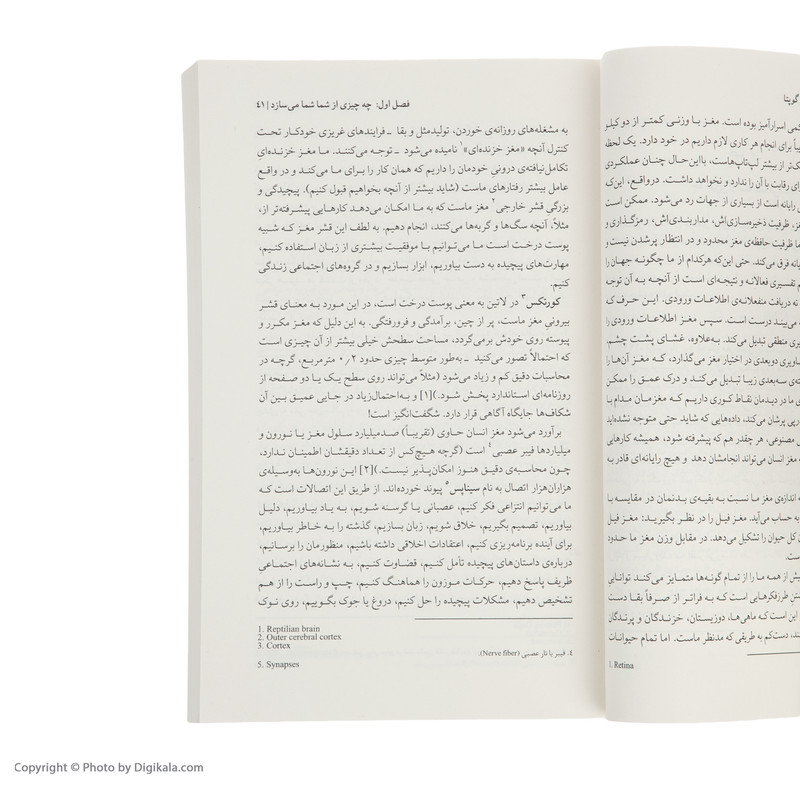 گوپتا
اسرارآمیز بوده است. مغز با وزنی کمتر از دو کیلو
برای انجام هر کاری لازم داریم در خود دارد. یک لحظه
از بیشتر لپ‌تاپ‌هاست، بااین‌حال چنان عملکردی
رقابت با آن را ندارد و نخواهد داشت. درواقع، این‌که
رایانه است از بسیاری از جهات رد می‌شود. ممکن است
ظرفیت ذخیره‌سازی‌اش، مداربندی‌اش، رمزگذاری و
ظرفیت حافظه‌ی مغز محدود و در انتظار پرشدن نیست و
فرق می‌کند. حتی این‌که هرکدام از ما چگونه جهان را
تفسیری فعالانه و نتیجه‌ای است از آنچه به آن توجه
نه دریافت منفعلانه‌ی اطلاعات ورودی. این حرف که
می‌بیند درست است. سپس مغز اطلاعات ورودی را
منطقی تبدیل می‌کند. به‌علاوه، غشای پشت چشم،
دوبعدی در اختیار مغز می‌گذارد، که مغز آن‌ها را
سه‌بعدی زیبا تبدیل می‌کند و درک عمق را ممکن
ما در دیدمان نقاط کوری داریم که مغزمان مدام با
پرشان می‌کند، داده‌هایی که شاید حتی متوجه نشده‌اید
مصنوعی، هر چقدر هم که پیشرفته شود، همیشه کارهایی
مغز انسان می‌تواند انجامشان دهد و هیچ رایانه‌ای قادر به
اندازه‌ی مغز ما نسبت به بقیه‌ی بدنمان در مقایسه با
به حساب می‌آید. مغز فیل را در نظر بگیرید: مغز فیل
کل حیوان را تشکیل می‌دهد. در مقابل وزن مغز ما حدود
است.
از همه ما را از تمام گونه‌ها متمایز می‌کند توانایی
طرزفکرهایی است که به فراتر از صرفاً بقا دست
این است که ماهی‌ها، دوزیستان، خزندگان و پرندگان
دست‌کم به طریقی که مدنظر ماست. اما تمام حیوانات
1. Retina
فصل اول: چه چیزی از شما شما می‌سازد | ۴۱
به مشغله‌های روزانه‌ی خوردن، تولیدمثل و بقا ـ فرایندهای غریزی خودکار تحت
کنترل آنچه «مغز خزنده‌ای»۱ نامیده می‌شود ـ توجه می‌کنند. ما مغز خزنده‌ای
تکامل‌نیافته‌ی درونیِ خودمان را داریم که همان کار را برای ما می‌کند و در واقع
عامل بیشتر رفتارهای ماست (شاید بیشتر از آنچه بخواهیم قبول کنیم). پیچیدگی و
بزرگیِ قشر خارجی۲ مغز ماست که به ما امکان می‌دهد کارهایی پیشرفته‌تر از،
مثلاً، آنچه سگ‌ها و گربه‌ها می‌کنند، انجام دهیم. به لطف این قشر مغز که شبیه
پوست درخت است ما می‌توانیم با موفقیت بیشتری از زبان استفاده کنیم،
مهارت‌های پیچیده به دست بیاوریم، ابزار بسازیم و در گروه‌های اجتماعی زندگی
کنیم.
کورتکس۳ در لاتین به معنای پوست درخت است، در این مورد به معنای قشر
بیرونیِ مغز ماست، پر از چین، برآمدگی و فرورفتگی. به این دلیل که مغز مکرر و
پیوسته روی خودش برمی‌گردد، مساحت سطحش خیلی بیشتر از آن چیزی است
که احتمالاً تصور می‌کنید ـ به‌طور متوسط چیزی حدود ۰٫۲ مترمربع، گرچه در
محاسبات دقیق کم و زیاد می‌شود (مثلاً می‌تواند روی سطح یک یا دو صفحه از
روزنامه‌ای استاندارد پخش شود.)[۱] و به‌احتمال‌زیاد در جایی عمیق بین آن
شکاف‌ها جایگاه آگاهی قرار دارد. شگفت‌انگیز است!
برآورد می‌شود مغز انسان حاوی (تقریباً) صدمیلیارد سلول مغز یا نورون و
میلیاردها فیبر عصبی۴ است (گرچه هیچ‌کس از تعداد دقیقشان اطمینان ندارد،
چون محاسبه‌ی دقیق هنوز امکان‌پذیر نیست.)[۲] این نورون‌ها به‌وسیله‌ی
هزاران‌هزار اتصال به نام سیناپس۵ پیوند خورده‌اند. از طریق این اتصالات است که
ما می‌توانیم انتزاعی فکر کنیم، عصبانی یا گرسنه شویم، به یاد بیاوریم، دلیل
بیاوریم، تصمیم بگیریم، خلاق شویم، زبان بسازیم، گذشته را به خاطر بیاوریم،
برای آینده برنامه‌ریزی کنیم، اعتقادات اخلاقی داشته باشیم، منظورمان را برسانیم،
درباره‌ی داستان‌های پیچیده تأمل کنیم، قضاوت کنیم، به نشانه‌های اجتماعی
ظریف پاسخ دهیم، حرکات موزون را هماهنگ کنیم، چپ و راست را از هم
تشخیص دهیم، مشکلات پیچیده را حل کنیم، دروغ یا جوک بگوییم، روی نوک
1. Reptilian brain
2. Outer cerebral cortex
3. Cortex
۴. فیبر یا تار عصبی (Nerve fiber).
5. Synapses
Copyright © Photo by Digikala.com